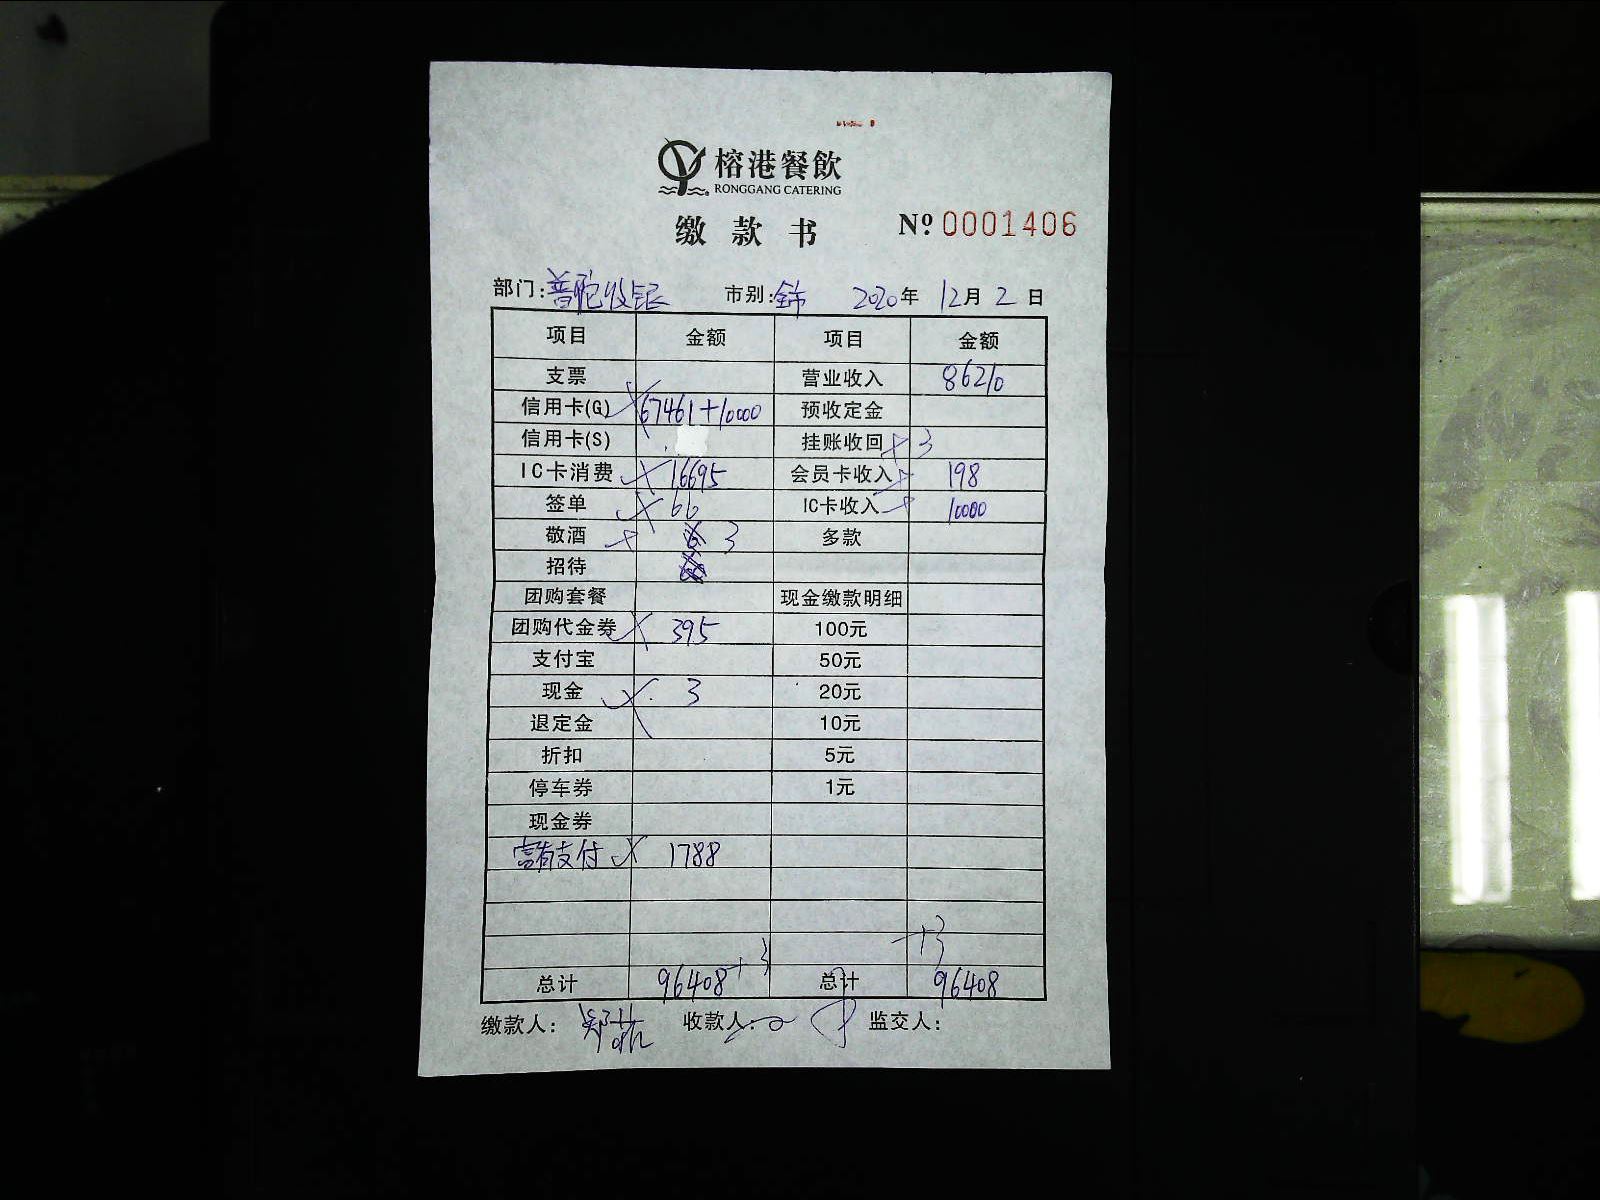 榕港餐飲
RONGGANG CATERING
缴款书 Nº 0001406
部门:普陀收银 市别: 2020年 12月 2日
项目 金额 项目 金额
支票 营业收入 86210
信用卡(G) 67461+10000 预收定金
信用卡(S) 挂账收回 + 3
IC卡消费 16695 会员卡收入 198
签单 66 IC卡收入 10000
敬酒 3 多款
招待
团购套餐 现金缴款明细
团购代金券 395 100元
支付宝 50元
现金 3 20元
退定金 10元
折扣 5元
停车券 1元
现金券
富有支付 1788
+3
总计 96408+3 总计 96408
缴款人: 收款人: 监交人: